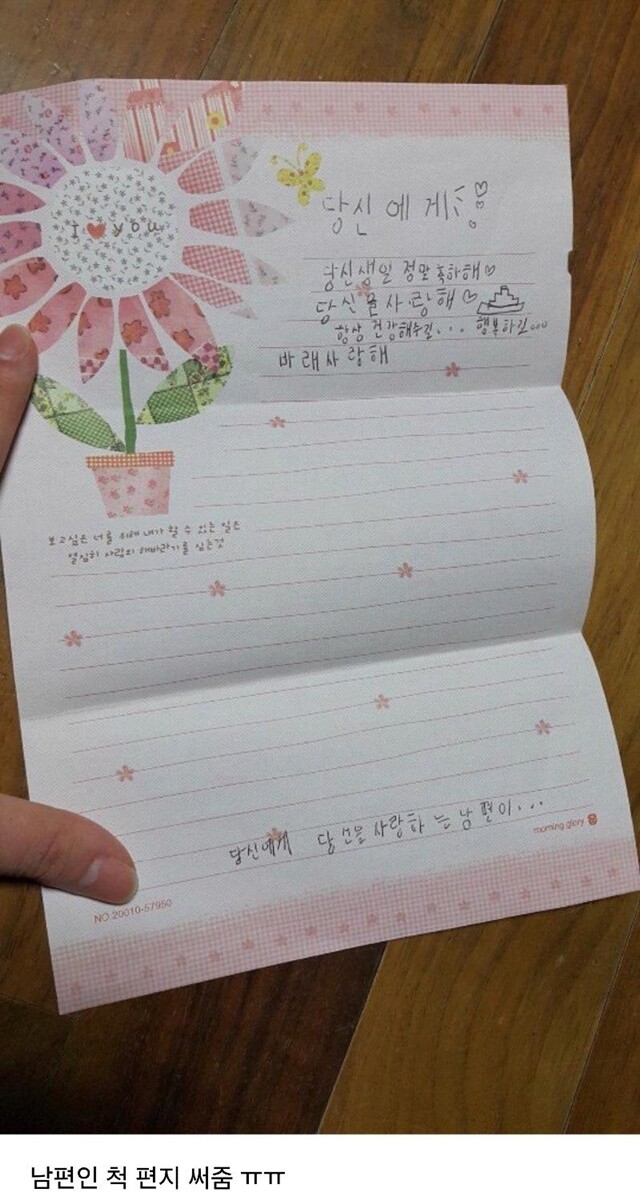 I ♥ you
당신에게 ♡
당신생일 정말축하해♡
당신을사랑해♡
항상 건강해주길... 행복하길...
바래사랑해
보고싶은 너를 위해 내가 할 수 있는 일은
열심히 사랑의 해바라기를 심는것
당신에게 당신을사랑하는남편이...
morning glory
NO.20010-57950
남편인 척 편지 써줌 ㅠㅠ